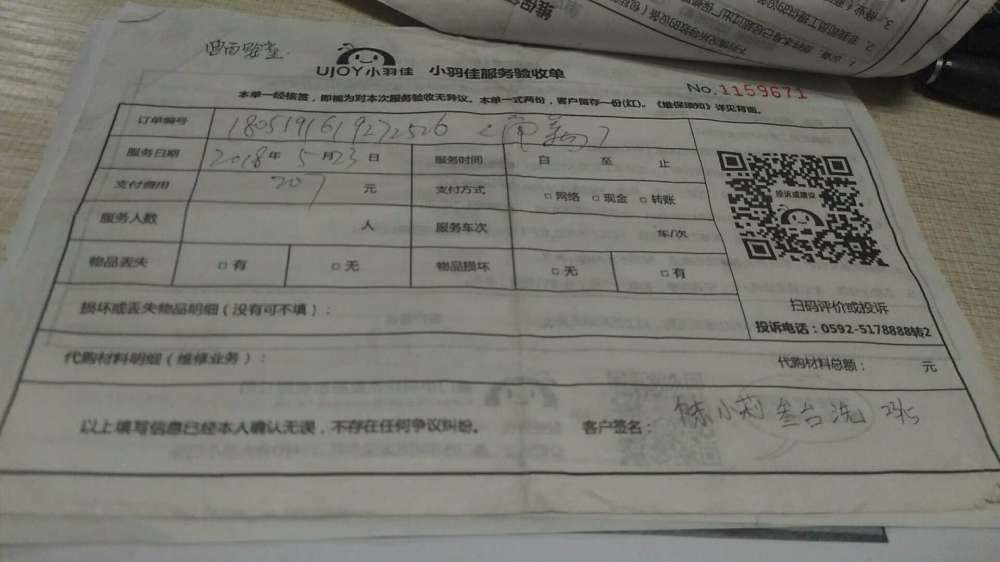 UJOY小羽佳 小羽佳服务验收单
No.1159671
本单一经核签，即视为对本次服务验收无异议。本单一式两份，客户留存一份(红)。《维保须知》详见背面。
订单编号 1805191619272526
服务日期 2018年 5月23日 服务时间 自 至 止
支付费用 207 元 支付方式 □ 网络 □ 现金 □ 转账
投诉或建议
服务人数 人 服务车次 车/次
物品丢失 □ 有 □ 无 物品损坏 □ 无 □ 有
损坏或丢失物品明细（没有可不填）：
扫码评价或投诉
投诉电话：0592-5178888转2
代购材料明细（维修业务）： 代购材料总额： 元
以上填写信息已经本人确认无误，不存在任何争议纠纷。 客户签名： 陈小莉 叁台洗